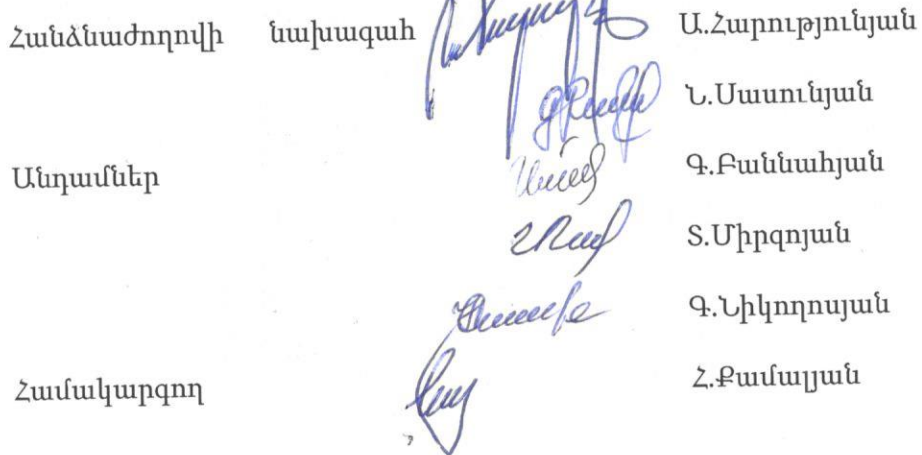 Հանձնաժողովի նախագահ Ա.Հարությունյան
Ն.Սասունյան
Անդամներ Գ.Բաննահյան
Տ.Միրզոյան
Գ.Նիկողոսյան
Համակարգող Հ.Քամալյան